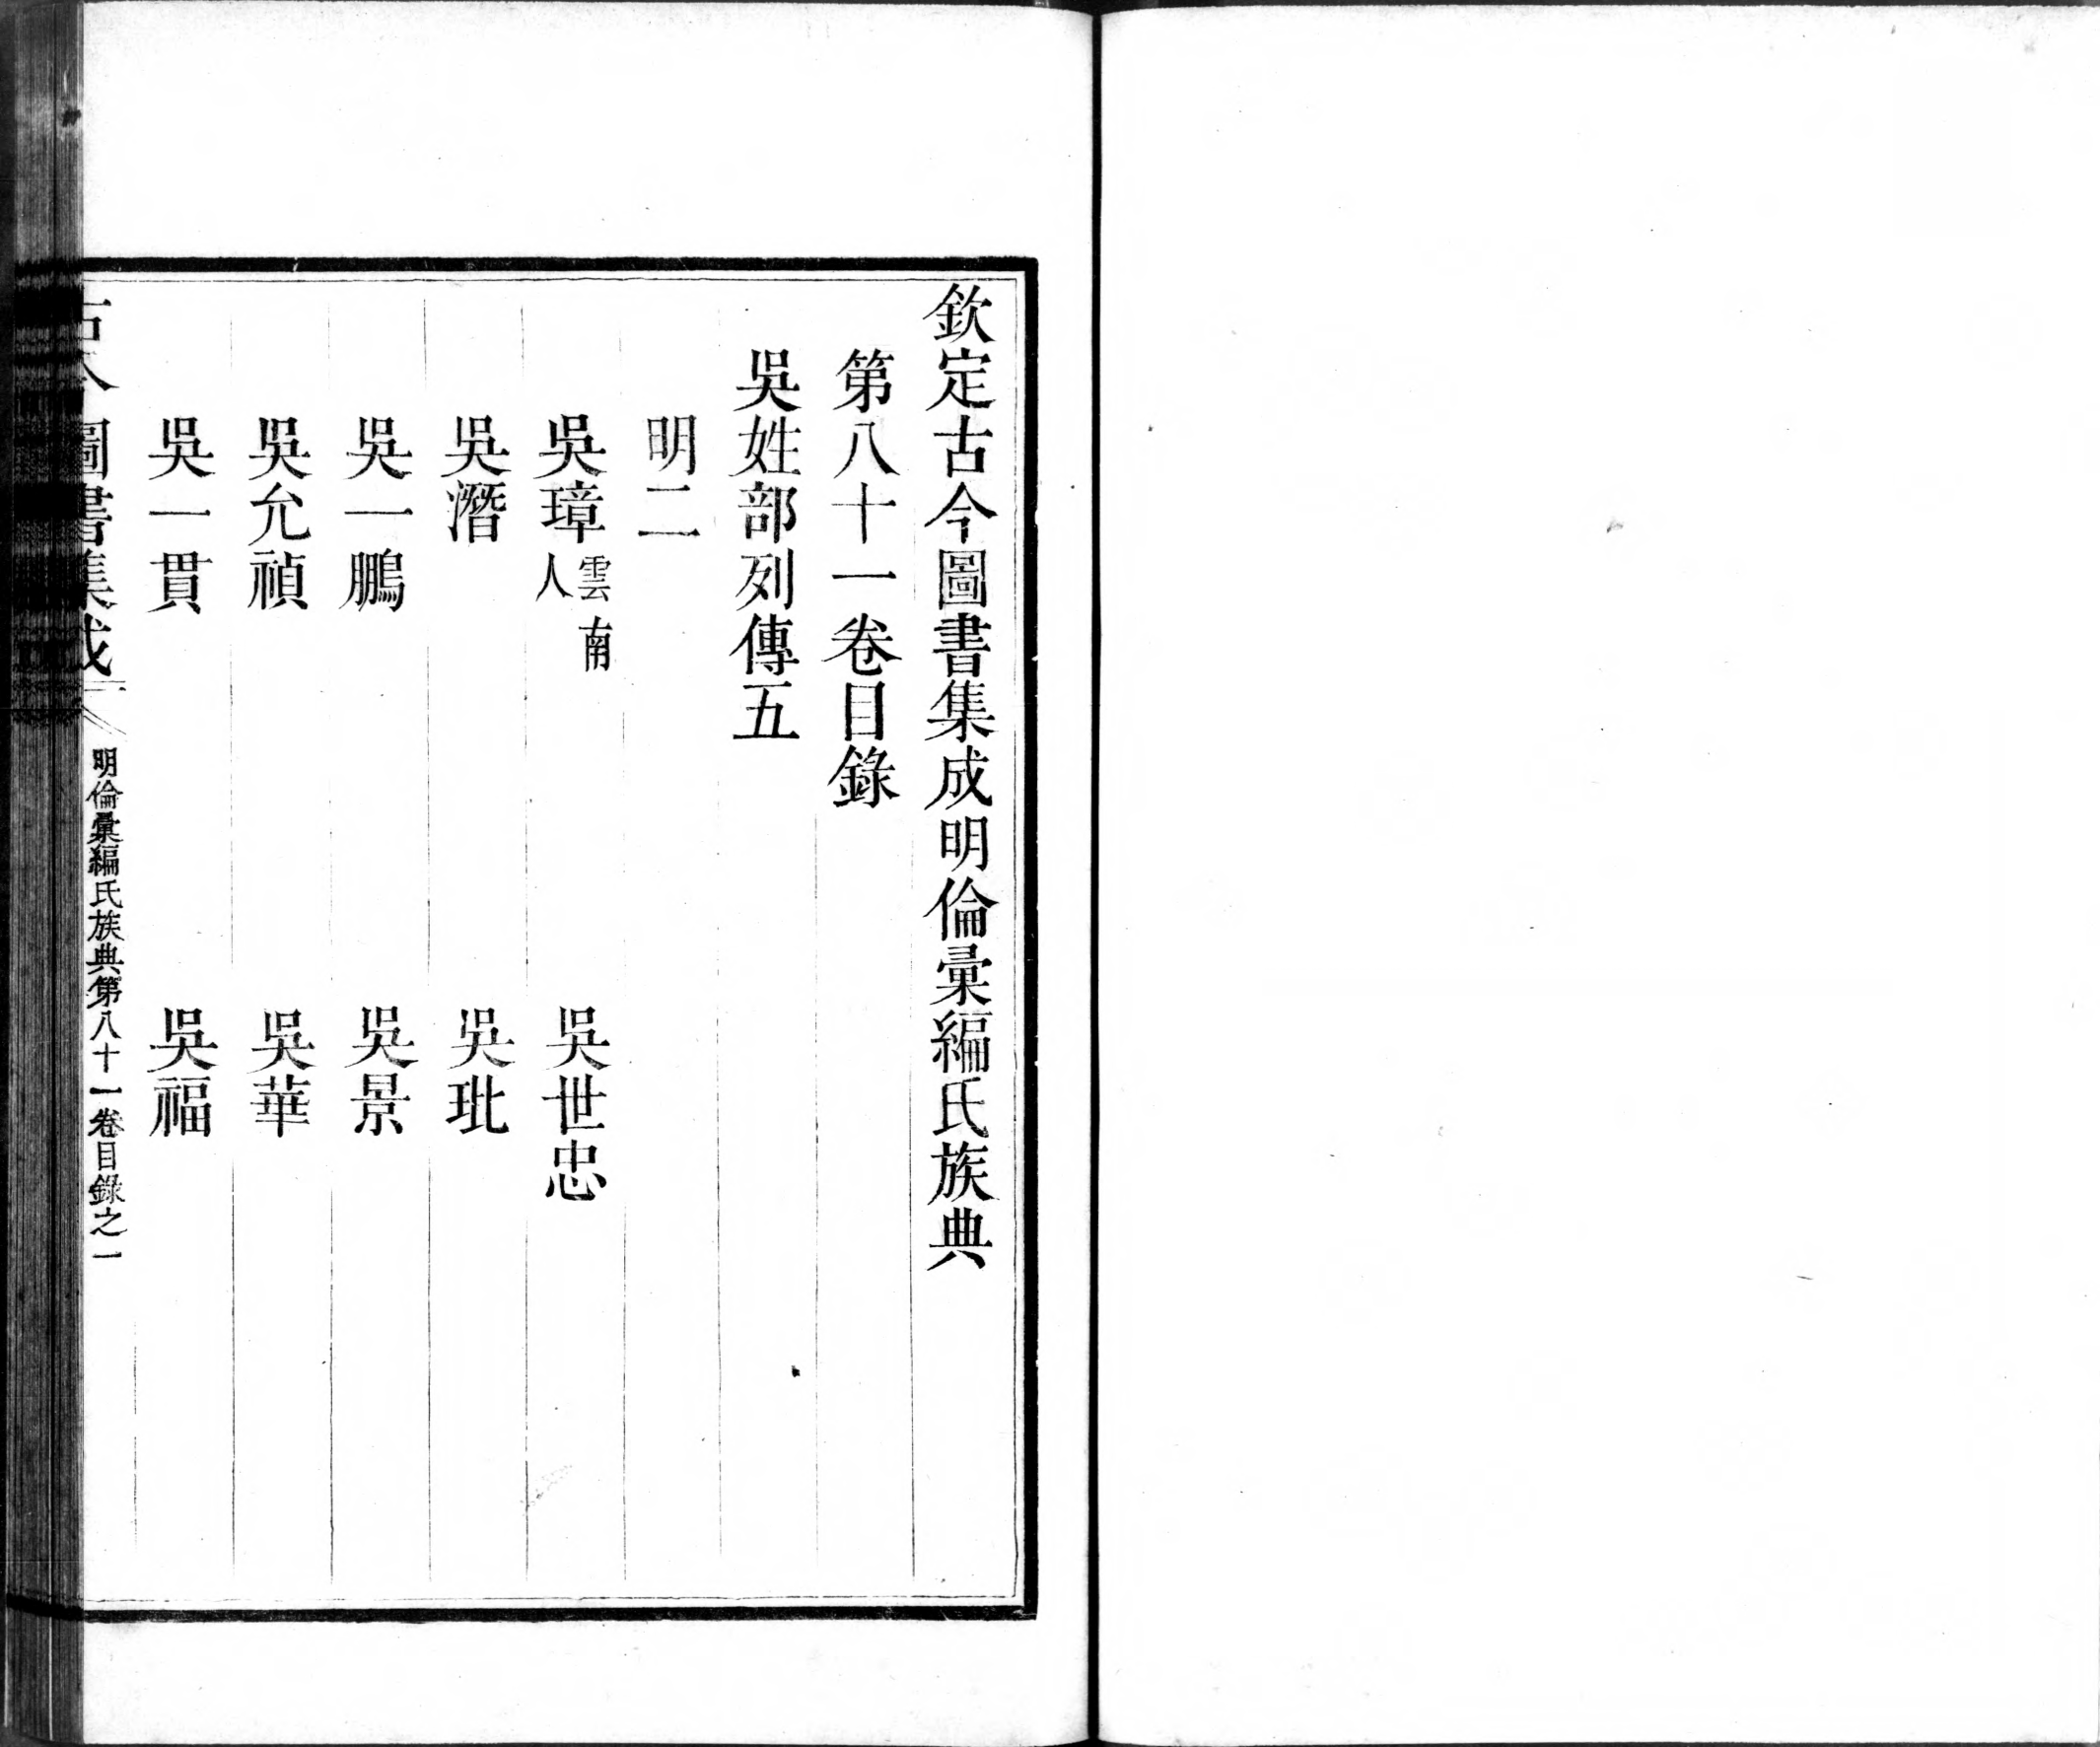 欽定古今圖書集成明倫彙編氏族典
第八十一卷目錄
吳姓部列傳五
明二
吳璋雲南人　吳世忠
吳潛　吳玭
吳一鵬　吳景
吳允禎　吳華
吳一貫　吳福
古今圖書集成　明倫彙編氏族典第八十一卷目錄之一